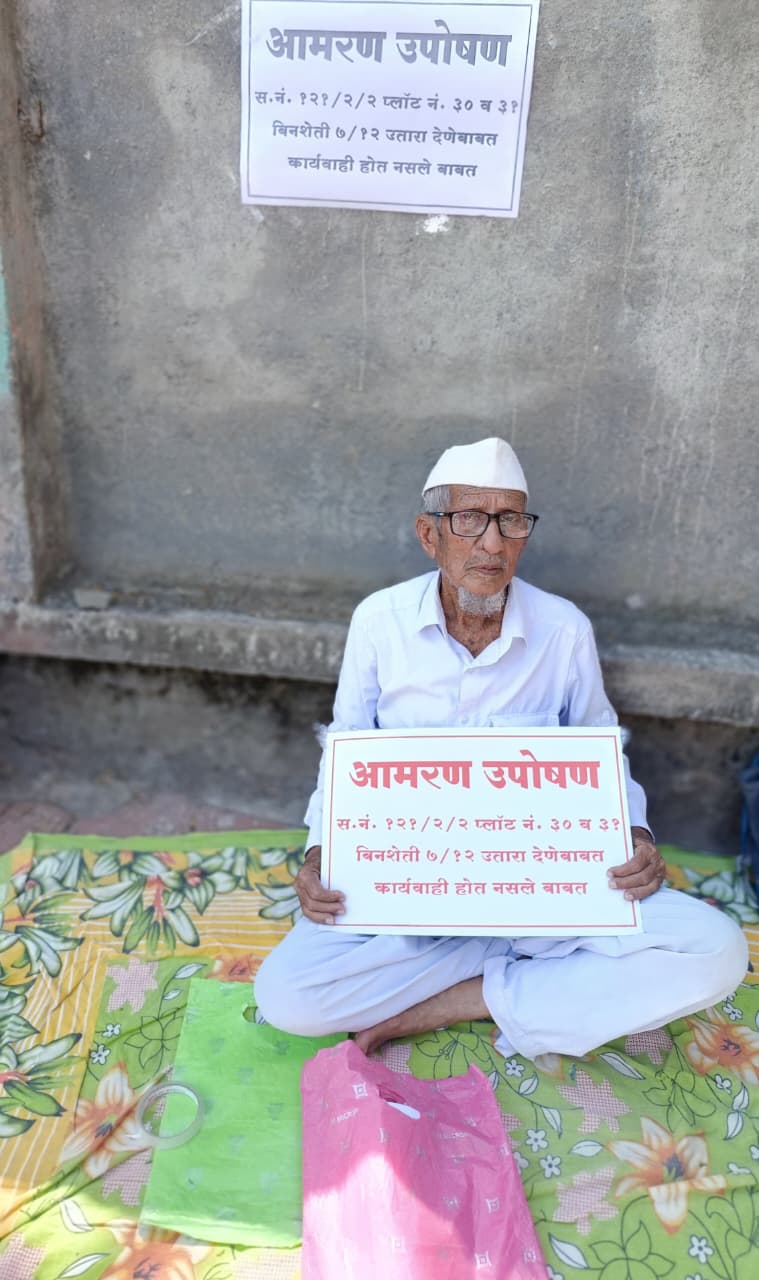 आमरण उपोषण
स.नं. १२१/२/२ प्लॉट नं. ३० व ३१
बिनशेती ७/१२ उतारा देणेबाबत
कार्यवाही होत नसले बाबत
आमरण उपोषण
स.नं. १२१/२/२ प्लॉट नं. ३० व ३१
बिनशेती ७/१२ उतारा देणेबाबत
कार्यवाही होत नसले बाबत